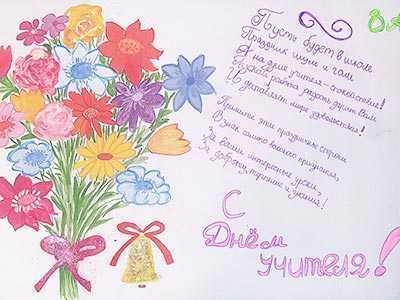 Пусть будет в школе
Праздник шум и гам
А на душе учителя – спокойствие!
Пускай работа радость дарит Вам
И доставляет море удовольствия!
Примите эти праздничные строки
В знак самого признания,
За ваши интересные уроки,
За доброту, терпение и
С
Днём
Учителя!